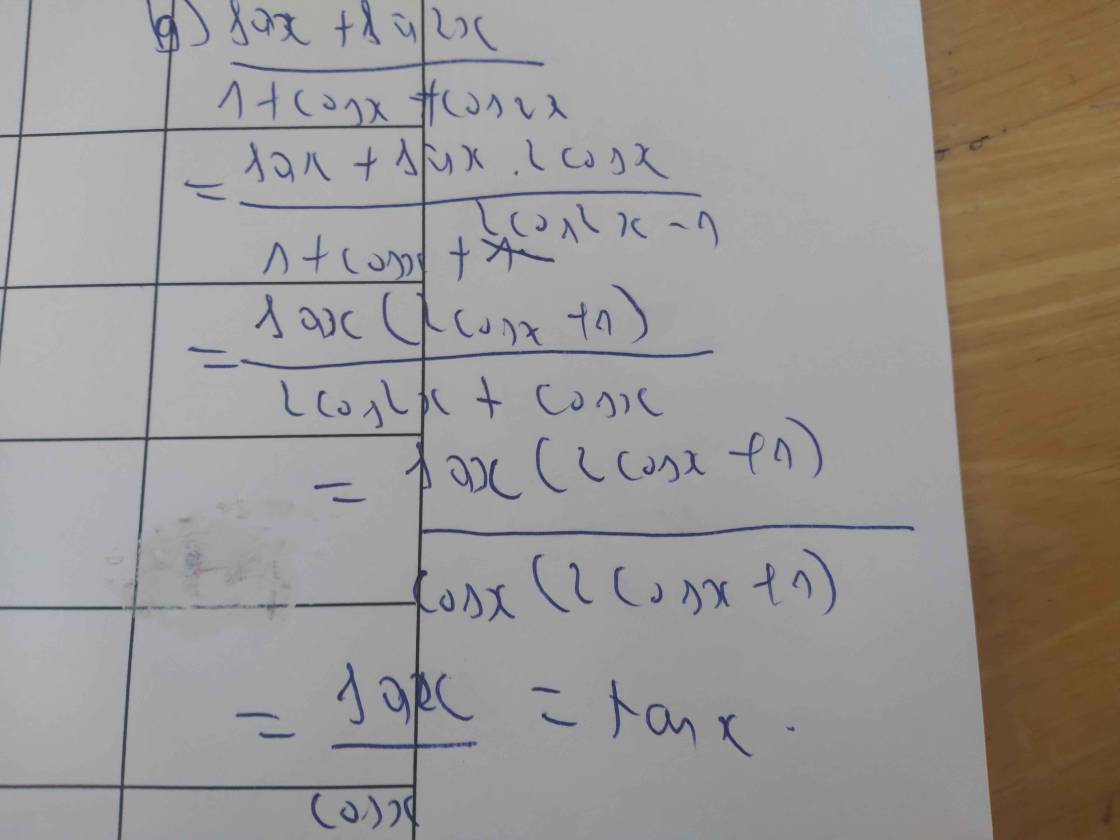 g) sin x + sin 2x
1 + cos x + cos 2x
= sin x + sin x . 2 cos x
1 + cos x + 2 cos² x - 1
= sin x (2 cos x + 1)
2 cos² x + cos x
= sin x (2 cos x + 1)
cos x (2 cos x + 1)
= sin x = tan x .
cos x